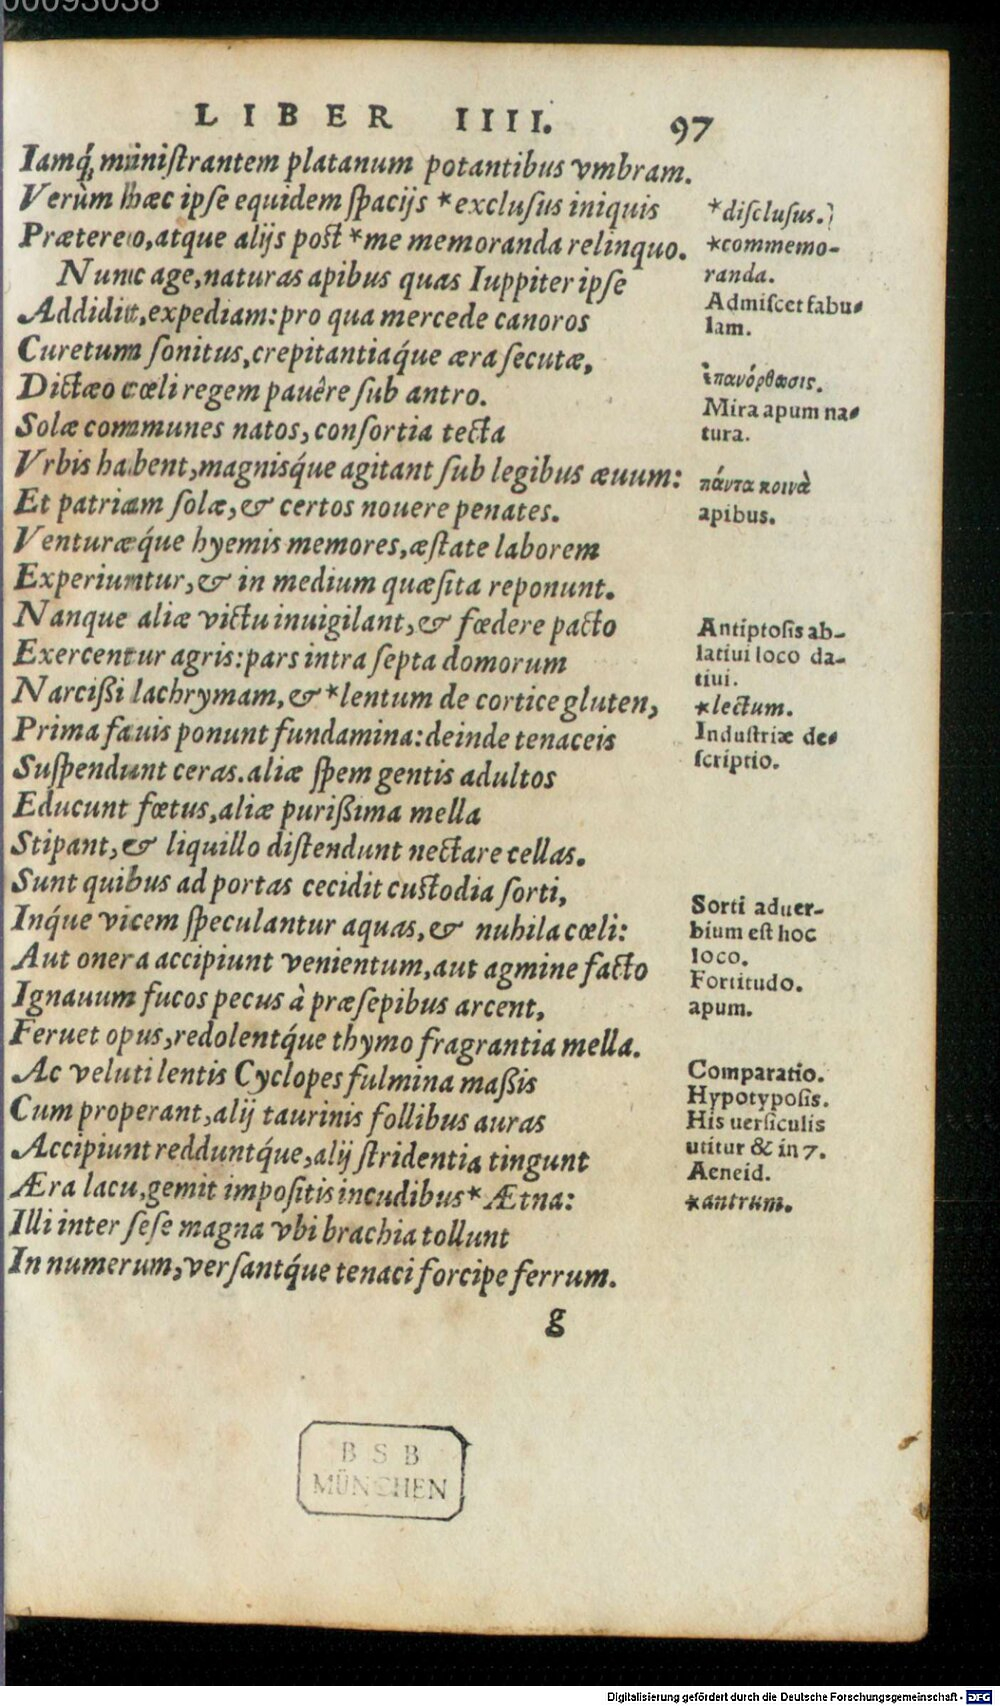 00093038
LIBER IIII. 97
Iamq́; miniſtrantem platanum potantibus vmbram.
Verùm hæc ipſe equidem ſpacijs *excluſus iniquis
Prætereo, atque alijs poſt *me memoranda relinquo.
Nunc age, naturas apibus quas Iuppiter ipſe
Addidit, expediam: pro qua mercede canoros
Curetum ſonitus, crepitantiaq́ue æra ſecutæ,
Dictæo cœli regem pauêre ſub antro.
Solæ communes natos, conſortia tecta
Vrbis habent, magniſq́ue agitant ſub legibus æuum:
Et patriam ſolæ, & certos nouere penates.
Venturæq́ue hyemis memores, æſtate laborem
Experiuntur, & in medium quæſita reponunt.
Nanque aliæ victu inuigilant, & fœdere pacto
Exercentur agris: pars intra ſepta domorum
Narcißi lachrymam, & *lentum de cortice gluten,
Prima fauis ponunt fundamina: deinde tenaceis
Suſpendunt ceras. aliæ ſpem gentis adultos
Educunt fœtus, aliæ purißima mella
Stipant, & liquillo diſtendunt nectare cellas.
Sunt quibus ad portas cecidit cuſtodia ſorti,
Inq́ue vicem ſpeculantur aquas, & nubila cœli:
Aut onera accipiunt venientum, aut agmine facto
Ignauum fucos pecus à præſepibus arcent,
Feruet opus, redolentq́ue thymo fragrantia mella.
Ac veluti lentis Cyclopes fulmina maßis
Cum properant, alij taurinis follibus auras
Accipiunt redduntq́ue, alij ſtridentia tingunt
Æra lacu, gemit impoſitis incudibus *Ætna:
Illi inter ſeſe magna vbi brachia tollunt
In numerum, verſantq́ue tenaci forcipe ferrum.
g
*diſcluſus.
*commemo-
randa.
Admiſcet fabu-
lam.
ἐπανόρθωσις.
Mira apum na-
tura.
πάντα κοινὰ
apibus.
Antiptoſis ab-
latiui loco da-
tiui.
*lectum.
Induſtriæ de-
ſcriptio.
Sorti aduer-
bium eſt hoc
loco.
Fortitudo.
apum.
Comparatio.
Hypotypoſis.
His uerſiculis
utitur & in 7.
Aeneid.
*antrum.
BSB
MÜNCHEN
Digitalisierung gefördert durch die Deutsche Forschungsgemeinschaft - DFG